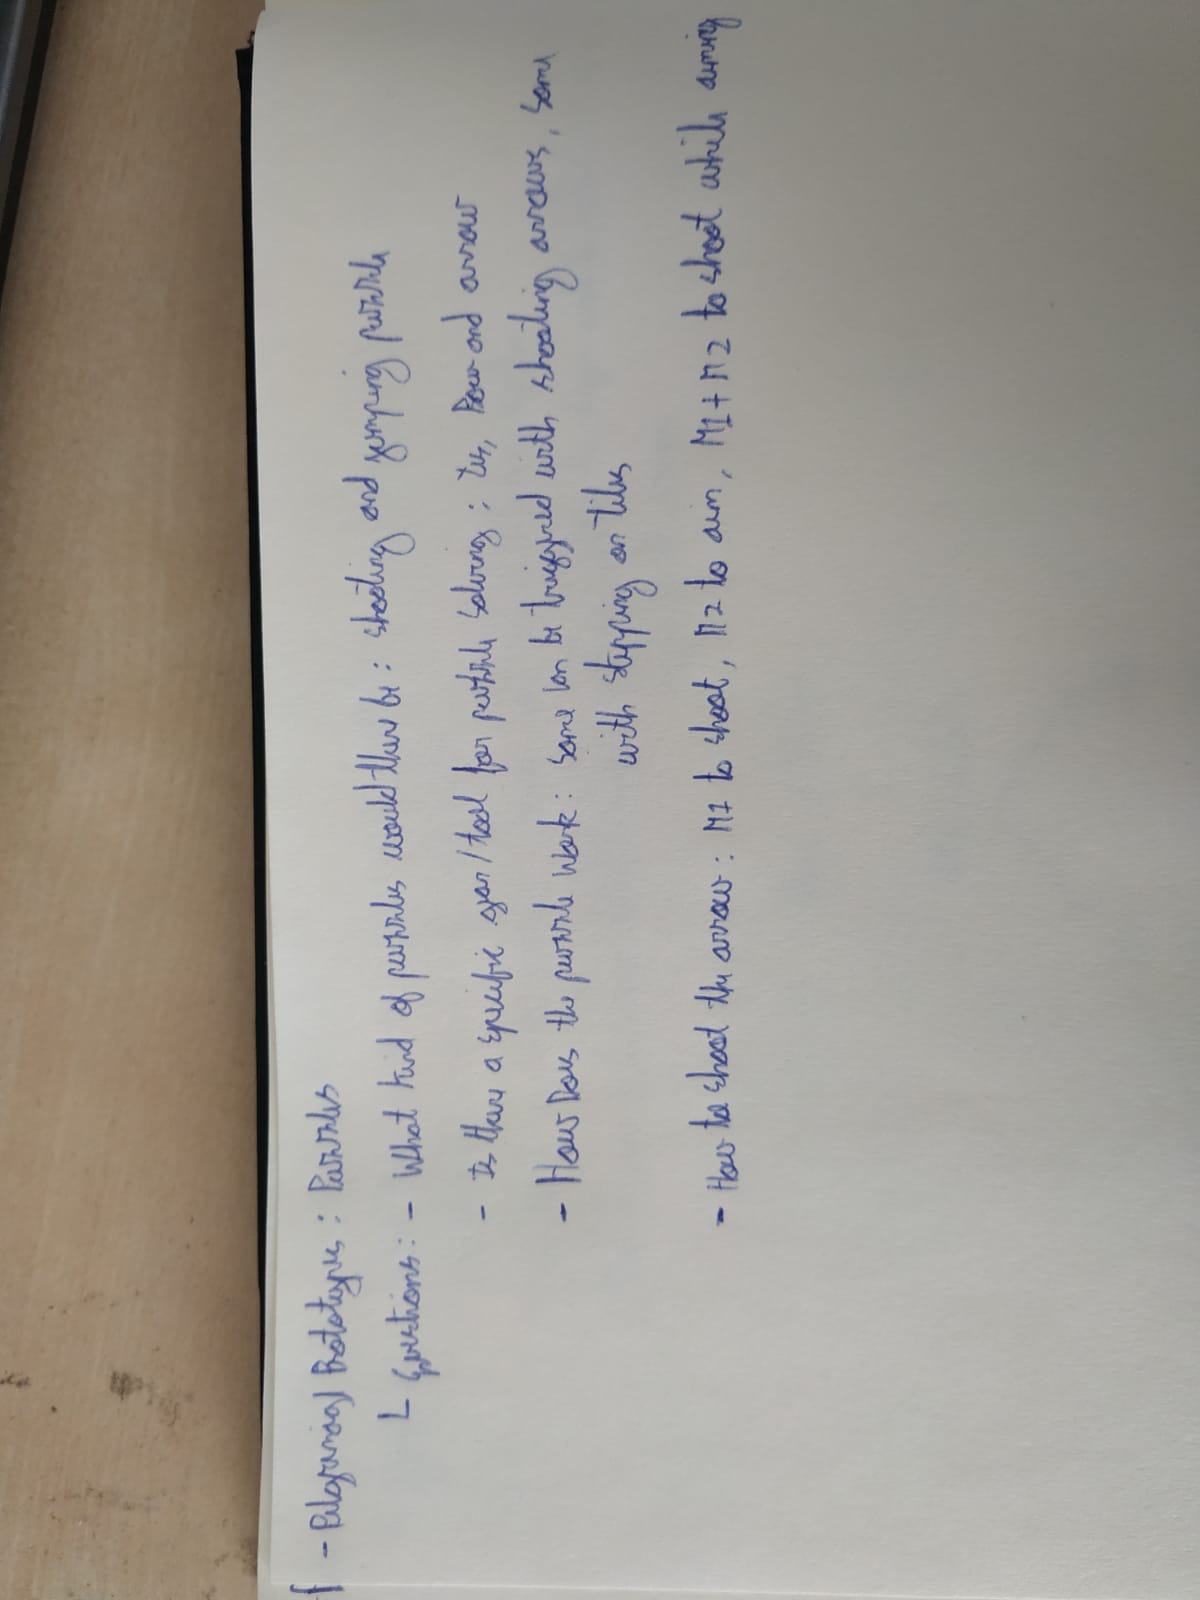 - Prototypes : Puzzles
└ Questions : - What kind of puzzles would there be : shooting and jumping puzzle
- Is there a specific gear/tool for puzzle solving : Yes, Bow and arrow
- How Does the puzzle work : Some can be triggered with shooting arrows, some
with stepping on tiles
- How to shoot the arrow : M1 to shoot, M2 to aim, M1 + M2 to shoot while aiming